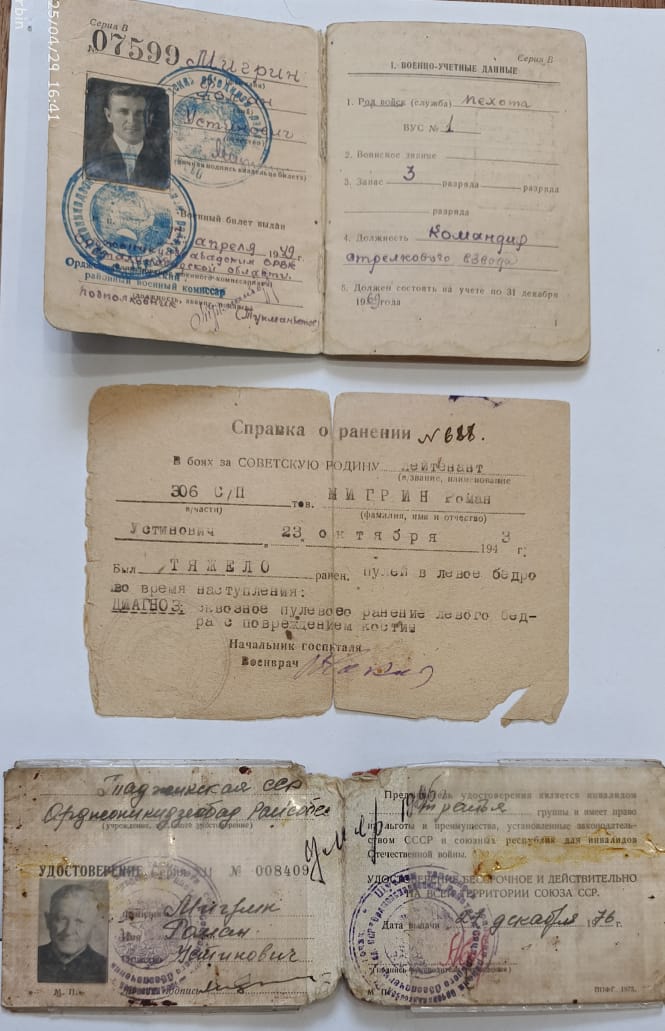 25/04/29 16:41
Серия В
№ 07599 Мигрин
Роман
Устинович
(личная подпись владельца билета)
Военный билет выдан
апреля 1949 г.
районный военный комиссар
подполковник
Серия В
I. ВОЕННО-УЧЕТНЫЕ ДАННЫЕ
1. Род войск (служба) пехота
ВУС № 1
2. Воинское звание
3. Запас 3 разряда разряда
разряда
4. Должность Командир
стрелкового взвода
5. Должен состоять на учете по 31 декабря
1969 года
1
Справка о ранении № 688.
В боях за СОВЕТСКУЮ РОДИНУ лейтенант
(в/звание, наименование
306 С/П тов. МИГРИН Роман
в/части) (фамилия, имя и отчество)
Устинович 23 октября 1943 г.
Был ТЯЖЕЛО ранен, пулей в левое бедро
во время наступления:
ДИАГНОЗ: сквозное пулевое ранение левого бед-
ра с повреждением кости
Начальник госпиталя
Военврач
Таджикская ССР
Орджоникидзеабад Райсобес
(учреждение, выдавшего удостоверение)
УДОСТОВЕРЕНИЕ Серия № 008409
Фамилия Мигрин
Имя Роман
Отчество Устинович
М. П. подпись
умер
Предъявитель удостоверения является инвалидом
третья группы и имеет право
на льготы и преимущества, установленные законодатель-
ством СССР и союзных республик для инвалидов
Отечественной войны.
УДОСТОВЕРЕНИЕ БЕССРОЧНОЕ И ДЕЙСТВИТЕЛЬНО
НА ВСЕЙ ТЕРРИТОРИИ СОЮЗА ССР.
Дата выдачи декабря 76 г.